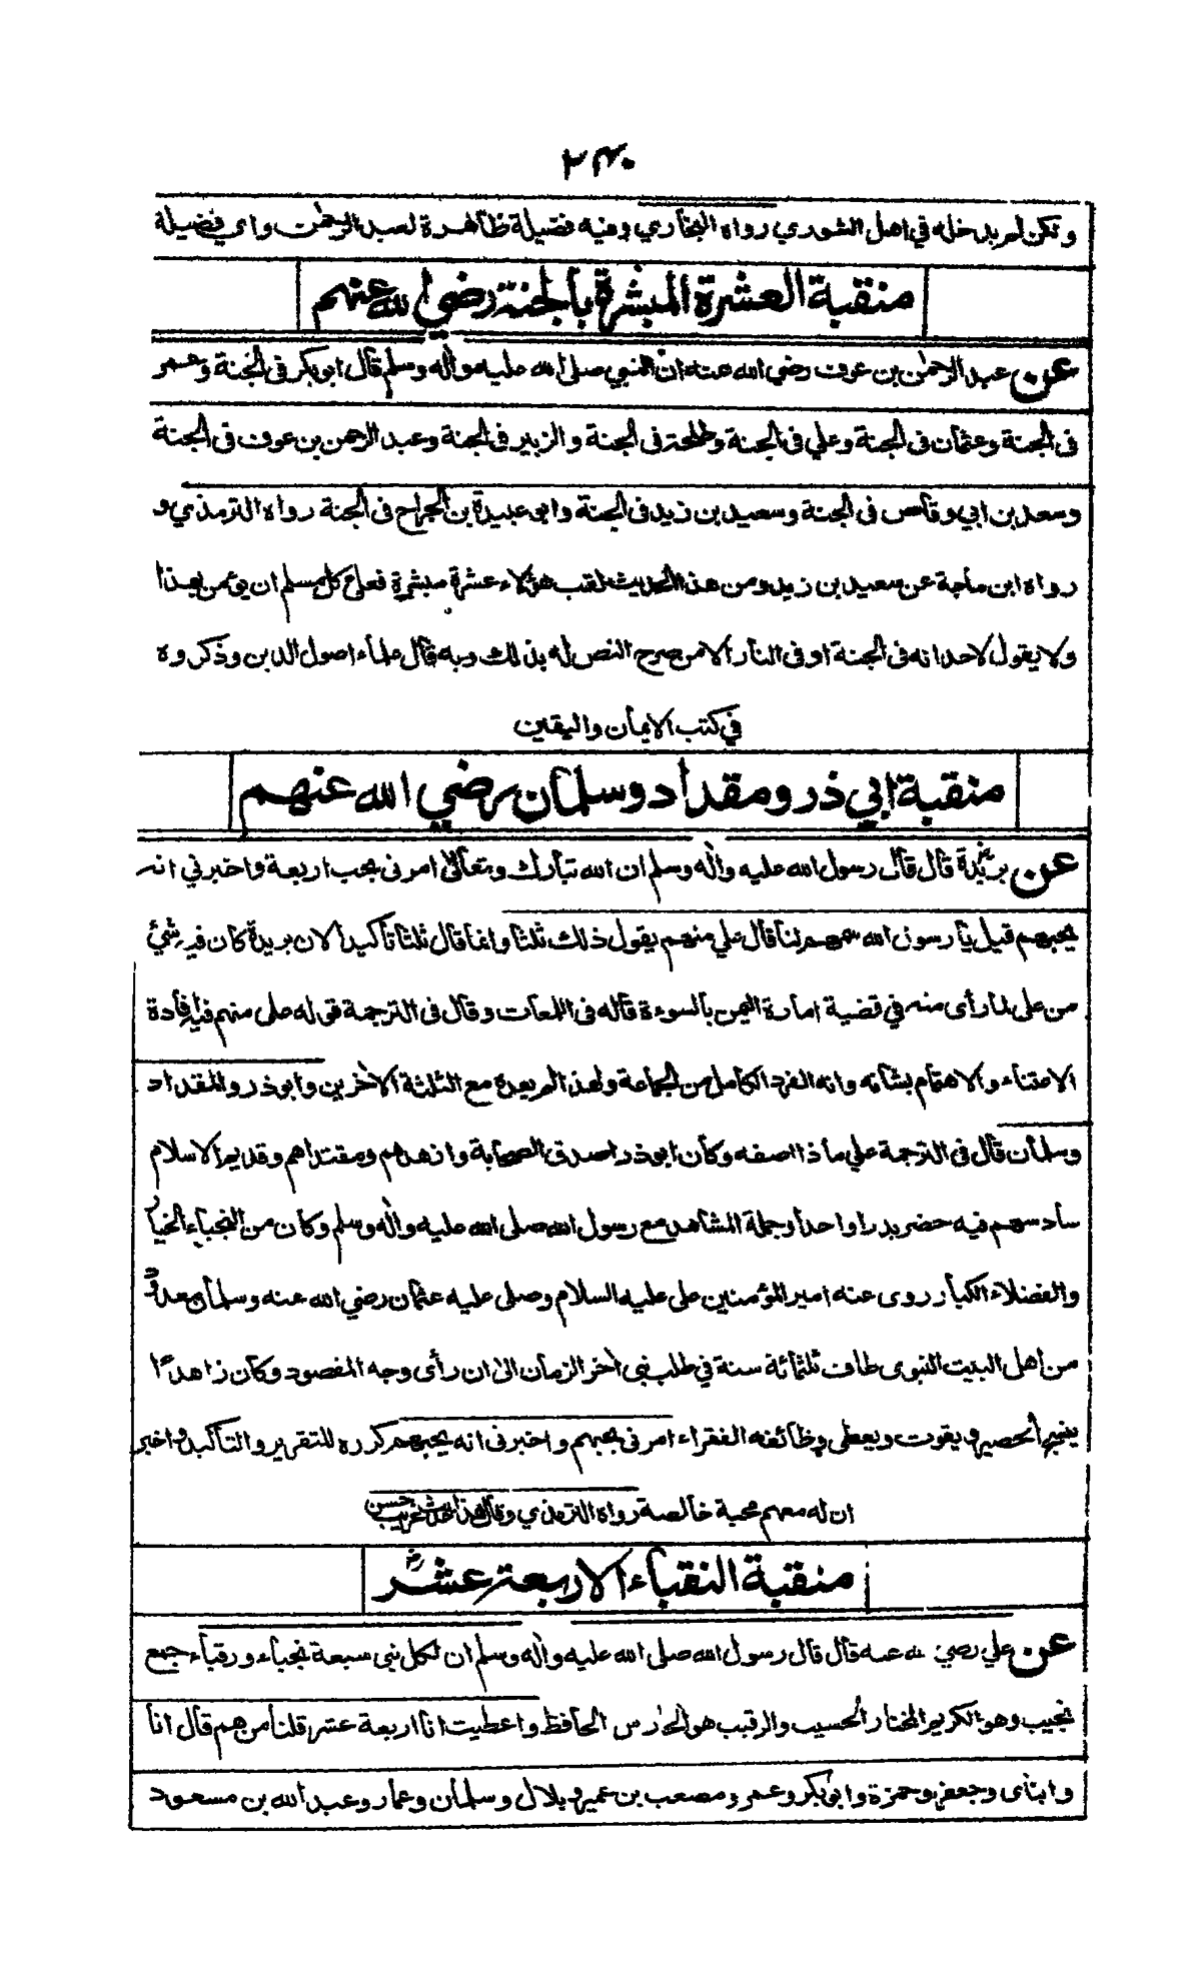 ٢٤٠
ولكن لم يدخله في اهل الشوري رواه البخاري وفيه فضيلة ظاهرة لعبد الرحمٰن واي فضيلة
منقبة العشرة المبشرة بالجنة رضي الله عنهم
عن عبد الرحمٰن بن عوف رضي الله عنه ان النبي صلى الله عليه واٰله وسلم قال ابوبكر فى الجنة وعمر
فى الجنة وعثمان فى الجنة وعلي فى الجنة وطلحة فى الجنة والزبير فى الجنة وعبد الرحمن بن عوف فى الجنة
وسعد بن ابي وقاص فى الجنة وسعيد بن زيد فى الجنة وابو عبيدة بن الجراح فى الجنة رواه الترمذي و
رواه ابن ماجة عن سعيد بن زيد ومن هذا الحديث لقب هؤلاء عشرة مبشرة فعلى كل مسلم ان يؤمن بهذا
ولا يقول لاحد انه فى الجنة او فى النار الا من صرح النص له بذلك وبه قال علماء اصول الدين وذكروه
في كتب الايمان واليقين
منقبة ابي ذر ومقداد وسلمان رضي الله عنهم
عن بريدة قال قال رسول الله عليه واٰله وسلم ان الله تبارك وتعالىٰ امرنى بحب اربعة واخبرني انه
يحبهم قيل يا رسول الله سمهم لنا قال علي منهم يقول ذلك ثلثا وانما قال ثلثا تأكيدا لان بريدة كان فيه شيئ
من على لما رأى منه في قضية امارة اليمن بالسوءة قاله فى اللمعات وقال فى الترجمة قوله على منهم فيه افادة
الاعتناء والاهتمام بشانه وانه الفرد الكامل من الجماعة ولهذا لم يعده مع الثلثة الاٰخرين وابو ذر والمقداد
وسلمان قال فى الترجمة علي ماذا اصفه وكان ابو ذر اصدق الصحابة وازهدهم ومقتداهم وقديم الاسلام
سادسهم فيه حضر بدرا واحدا وجملة المشاهد مع رسول الله صلى الله عليه واٰله وسلم وكان من النجباء الخيار
والفضلاء الكبار روى عنه امير المؤمنين على عليه السلام وصلى عليه عثمان رضي الله عنه وسلمان معدود
من اهل البيت النبوى طاف ثلثمائة سنة في طلب نبى اٰخر الزمان الى ان رأى وجه المقصود وكان زاهدًا
ينسج الحصير ويقوت ويعطى وظائفه الفقراء امرنى بحبهم واخبرنى انه يحبهم كرره للتقرير والتاكيد واخبر
ان له معهم محبة خالصة رواه الترمذي وقال هذا حديث حسن غريب
منقبة النقباء الاربعة عشر
عن علي رضي الله عنه قال قال رسول الله صلى الله عليه واٰله وسلم ان لكل نبى سبعة نجباء ورقباء جمع
نجيب وهو الكريم المختار الحسيب والرقيب هو الحارس الحافظ واعطيت انا اربعة عشر قلنا من هم قال انا
وابناى وجعفر وحمزة وابوبكر وعمر ومصعب بن عمير وبلال وسلمان وعمار وعبد الله بن مسعود